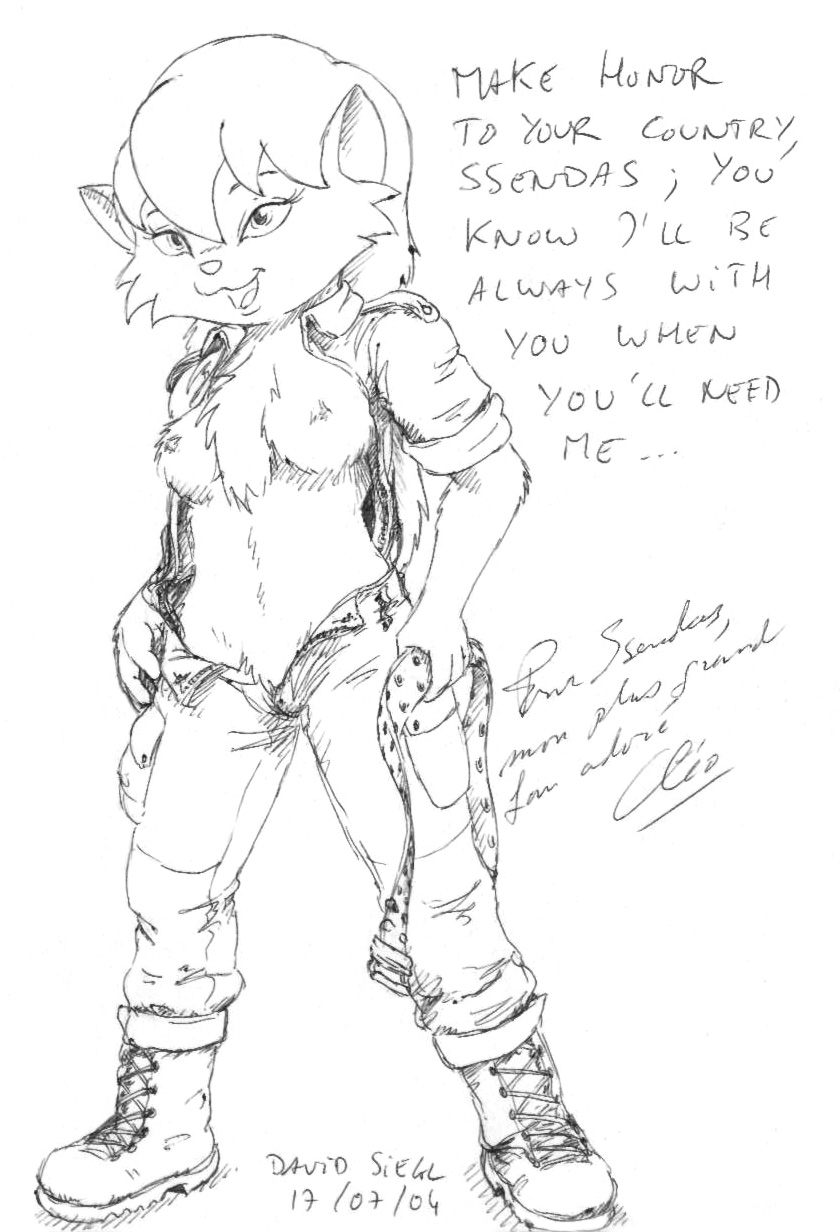 MAKE HONOR
TO YOUR COUNTRY,
SSENDAS ; YOU
KNOW I'LL BE
ALWAYS WITH
YOU WHEN
YOU'LL NEED
ME ...
Pour Ssendas,
mon plus grand
fan adoré
Cléo
DAVID SIEGL
17/07/04